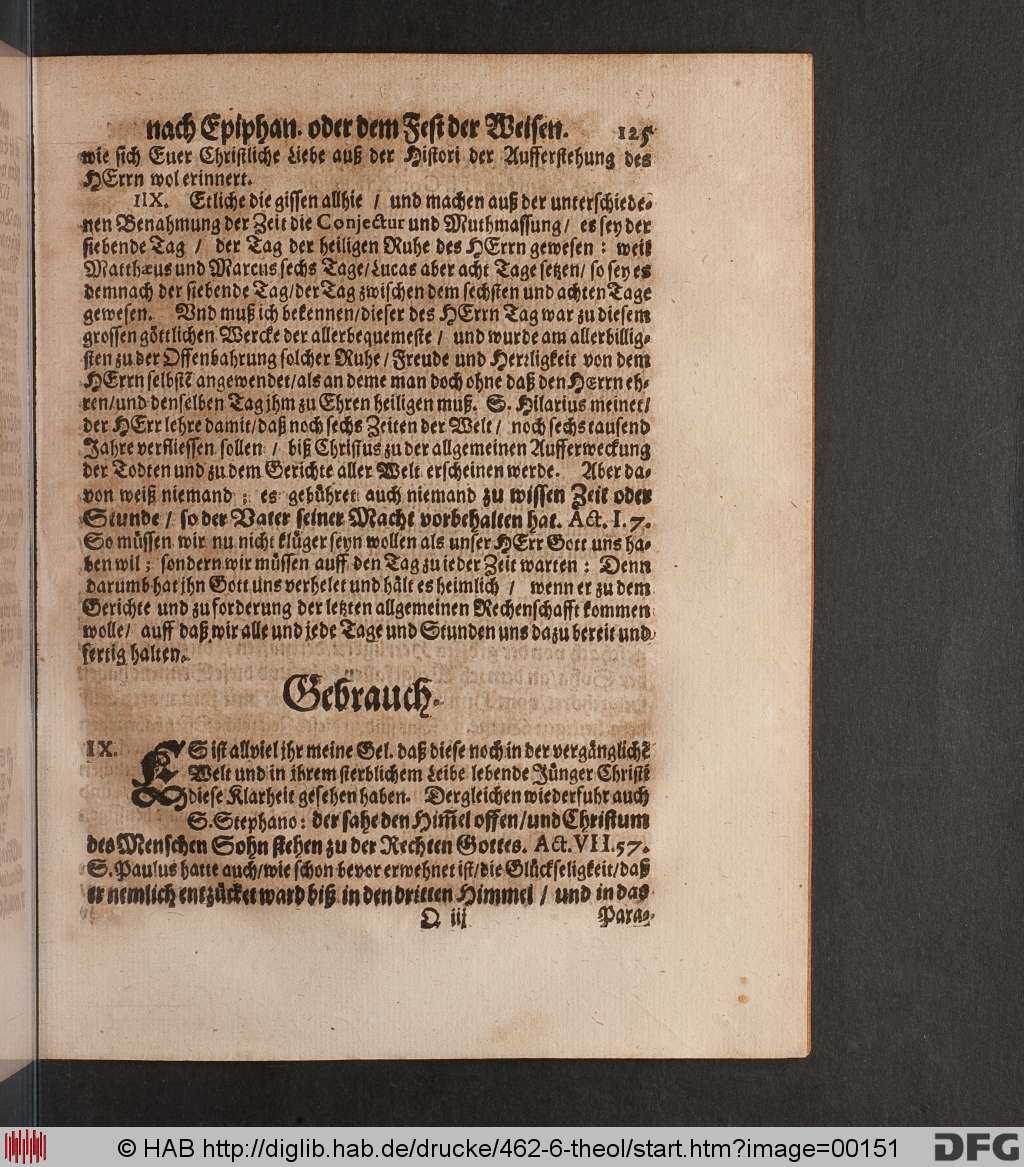 nach Epiphan. oder dem Fest der Weisen. 125
wie sich Euer Christliche Liebe auß der Histori der Aufferstehung des
HErrn wol erinnert.
IIX. Etliche die gissen allhie / und machen auß der unterschiede-
nen Benahmung der Zeit die Conjectur und Muthmassung / es sey der
siebende Tag / der Tag der heiligen Ruhe des HErrn gewesen : weil
Matthæus und Marcus sechs Tage / Lucas aber acht Tage setzen / so sey es
demnach der siebende Tag / der Tag zwischen dem sechsten und achten Tage
gewesen. Vnd muß ich bekennen / dieser des HErrn Tag war zu diesem
grossen göttlichen Wercke der allerbequemeste / und wurde am allerbillig-
sten zu der Offenbahrung solcher Ruhe / Freude und Herrligkeit von dem
HErrn selbstẽ angewendet / als an deme man doch ohne daß den HErrn eh-
ren / und denselben Tag jhm zu Ehren heiligen muß. S. Hilarius meinet /
der HErr lehre damit / daß noch sechs Zeiten der Welt / noch sechs tausend
Jahre verfliessen sollen / biß Christus zu der allgemeinen Aufferweckung
der Todten und zu dem Gerichte aller Welt erscheinen werde. Aber da-
von weiß niemand ; es gebühret auch niemand zu wissen Zeit oder
Stunde / so der Vater seiner Macht vorbehalten hat. Act. I. 7.
So müssen wir nu nicht klüger seyn wollen als unser HErr Gott uns ha-
ben wil ; sondern wir müssen auff den Tag zu jeder Zeit warten : Denn
darumb hat jhn Gott uns verhelet und hält es heimlich / wenn er zu dem
Gerichte und zu forderung der letzten allgemeinen Rechenschafft kommen
wolle / auff daß wir alle und jede Tage und Stunden uns dazu bereit und
fertig halten.
Gebrauch.
IX. ES ist allviel jhr meine Gel. daß diese noch in der vergänglichẽ
Welt und in jhrem sterblichem Leibe lebende Jünger Christi
diese Klarheit gesehen haben. Dergleichen wiederfuhr auch
S. Stephano : der sahe den Him̃el offen / und Christum
des Menschen Sohn stehen zu der Rechten Gottes. Act. VII. 57.
S. Paulus hatte auch / wie schon bevor erwehnet ist / die Glückseligkeit / daß
er nemlich entzücket ward biß in den dritten Himmel / und in das
Q iij Para-
© HAB http://diglib.hab.de/drucke/462-6-theol/start.htm?image=00151
DFG